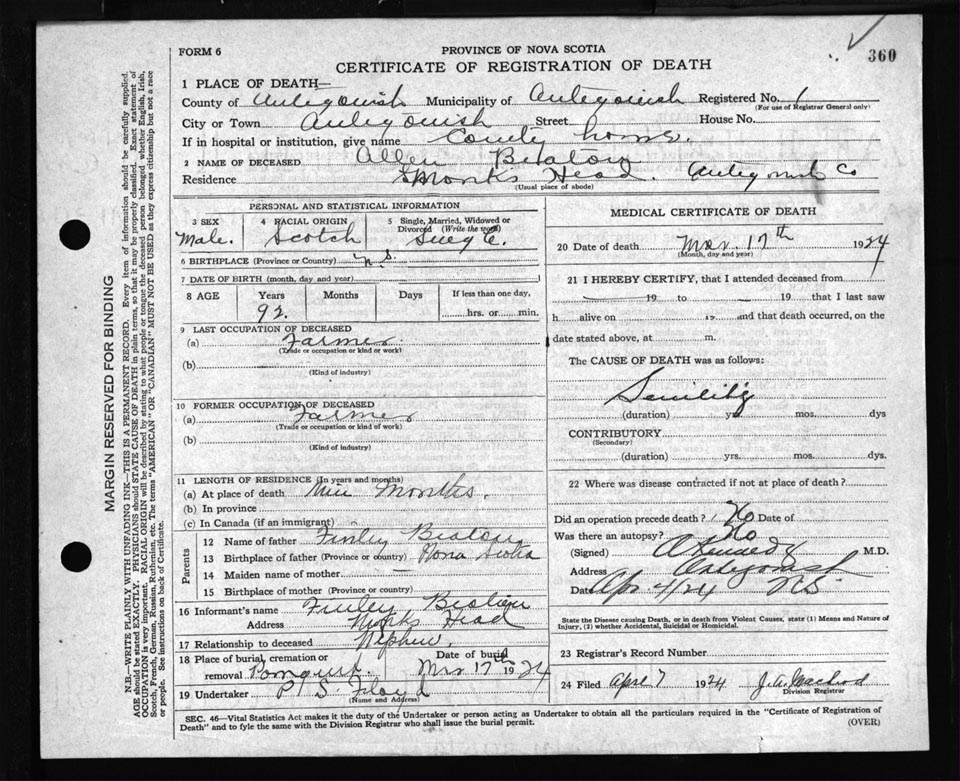 360
FORM 6
PROVINCE OF NOVA SCOTIA
CERTIFICATE OF REGISTRATION OF DEATH
1 PLACE OF DEATH—
County of Antigonish Municipality of Antigonish Registered No. 1
(For use of Registrar General only)
City or Town Antigonish Street House No.
If in hospital or institution, give name County home.
2 NAME OF DECEASED Allen Beaton
Residence Monks Head. Antigonish Co
(Usual place of abode)
PERSONAL AND STATISTICAL INFORMATION
3 SEX 4 RACIAL ORIGIN 5 Single, Married, Widowed or Divorced (Write the word)
Male. Scotch
6 BIRTHPLACE (Province or Country) N.S.
7 DATE OF BIRTH (month, day and year)
8 AGE Years Months Days If less than one day,
92. hrs. or min.
9 LAST OCCUPATION OF DECEASED
(a) Farmer
(Trade or occupation or kind or work)
(b)
(Kind of industry)
10 FORMER OCCUPATION OF DECEASED
(a) Farmer
(Trade or occupation or kind or work)
(b)
(Kind of industry)
11 LENGTH OF RESIDENCE (In years and months)
(a) At place of death Months.
(b) In province
(c) In Canada (if an immigrant)
Parents
12 Name of father Finley Beaton
13 Birthplace of father (Province or country) Nova Scotia
14 Maiden name of mother —
15 Birthplace of mother (Province or country)
16 Informant's name Finley Beaton
Address Monks Head
17 Relationship to deceased Nephew
18 Place of burial, cremation or removal Pomquet. Date of burial Mar 17th 1924
19 Undertaker P S Floyd
(Name and Address)
MEDICAL CERTIFICATE OF DEATH
20 Date of death Mar. 17th 1924
(Month, day and year)
21 I HEREBY CERTIFY, that I attended deceased from
19 to 19 that I last saw
h alive on 19 and that death occurred, on the
date stated above, at m.
The CAUSE OF DEATH was as follows:
Senility
(duration) yrs. mos. dys
CONTRIBUTORY
(Secondary)
(duration) yrs. mos. dys.
22 Where was disease contracted if not at place of death?
Did an operation precede death? No Date of
Was there an autopsy? No
(Signed) A Kennedy M.D.
Address Antigonish
Date Apr 4/24 NS
State the Disease causing Death, or in death from Violent Causes, state (1) Means and Nature of
Injury, (2) whether Accidental, Suicidal or Homicidal.
23 Registrar's Record Number
24 Filed April 7 1924 J. A. Macleod
Division Registrar
SEC. 46—Vital Statistics Act makes it the duty of the Undertaker or person acting as Undertaker to obtain all the particulars required in the "Certificate of Registration of
Death" and to fyle the same with the Division Registrar who shall issue the burial permit.
(OVER)
MARGIN RESERVED FOR BINDING
N.B.—WRITE PLAINLY WITH UNFADING INK—THIS IS A PERMANENT RECORD. Every item of information should be carefully supplied.
AGE should be stated EXACTLY. PHYSICIANS should STATE CAUSE OF DEATH in plain terms, so that it may be properly classified. Exact statement of
OCCUPATION is very important. RACIAL ORIGIN will be described by stating to what people or tongue the deceased person belonged whether English, Irish,
Scotch, French, German, Russian, Ruthenian, etc. The terms "AMERICAN" OR "CANADIAN" MUST NOT BE USED as they express citizenship but not a race
or people. See instructions on back of Certificate.